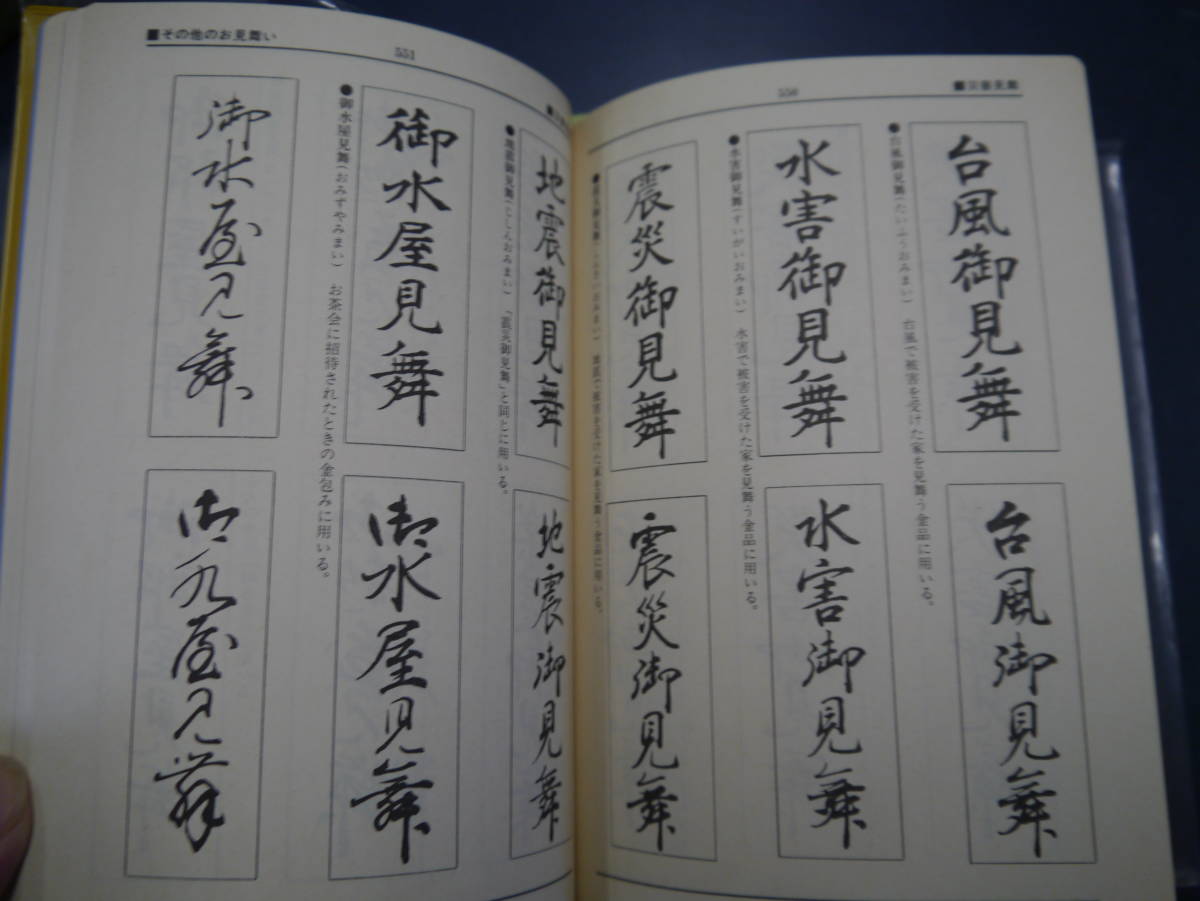 550
■災害見舞
●台風御見舞(たいふうおみまい) 台風で被害を受けた家を見舞う金品に用いる。
台風御見舞
台風御見舞
●水害御見舞(すいがいおみまい) 水害で被害を受けた家を見舞う金品に用いる。
水害御見舞
水害御見舞
●震災御見舞(しんさいおみまい) 地震で被害を受けた家を見舞う金品に用いる。
震災御見舞
震災御見舞
551
■その他のお見舞い
●地震御見舞(じしんおみまい) 「震災御見舞」と同じに用いる。
地震御見舞
地震御見舞
●御水屋見舞(おみずやみまい) お茶会に招待されたときの金包みに用いる。
御水屋見舞
御水屋見舞
御水屋見舞
御水屋見舞